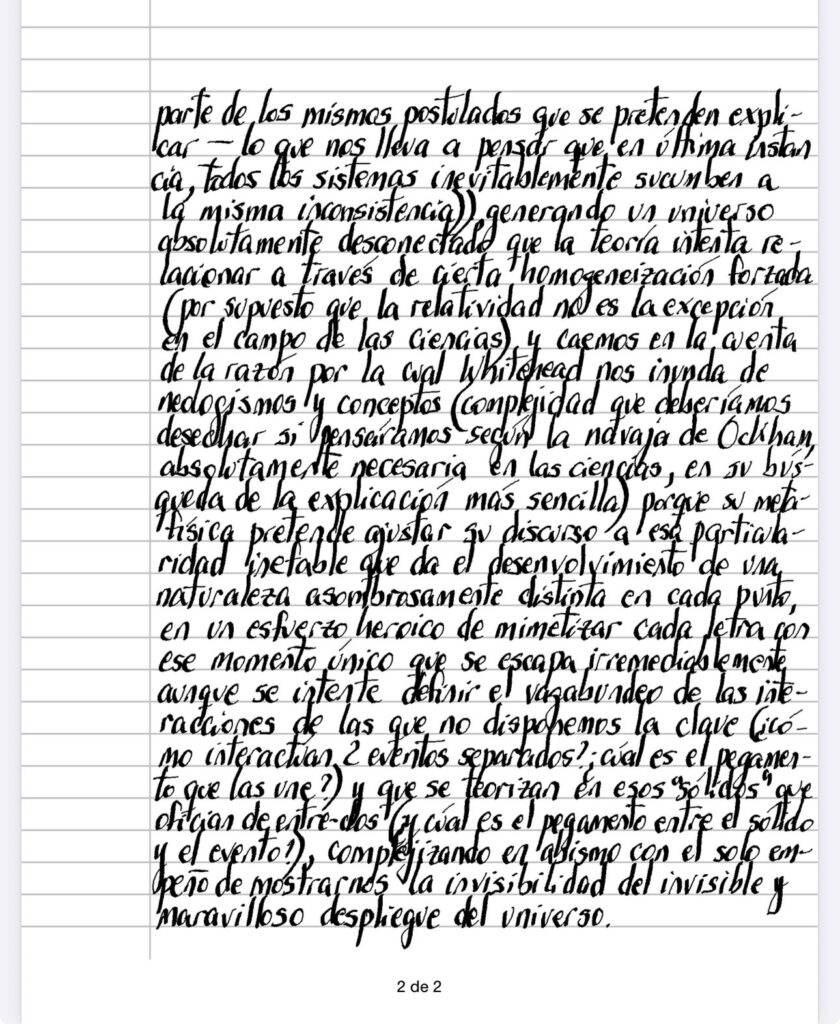 parte de los mismos postulados que se pretenden expli-
car — lo que nos lleva a pensar que en última instan
cia, todos los sistemas inevitablemente sucumben a
la misma inconsistencia)), generando un universo
absolutamente desconectado que la teoría intenta re-
lacionar a través de cierta homogeneización forzada
(por supuesto que la relatividad no es la excepción
en el campo de las ciencias), y caemos en la cuenta
de la razón por la cual Whitehead nos inunda de
neologismos y conceptos (complejidad que deberíamos
desechar si pensáramos según la navaja de Ockhan,
absolutamente necesaria en las ciencias, en su bús-
queda de la explicación más sencilla) porque su meta-
física pretende ajustar su discurso a esa particula-
ridad inefable que da el desenvolvimiento de una
naturaleza asombrosamente distinta en cada punto,
en un esfuerzo heroico de mimetizar cada letra con
ese momento único que se escapa irremediablemente
aunque se intente definir el vagabundeo de las inte-
racciones de las que no disponemos la clave (¿có-
mo interactúan 2 eventos separados? ¿cuál es el pegamen-
to que las une?) y que se teorizan en esos "sólidos" que
ofician de entre-dos (¿y cuál es el pegamento entre el sólido
y el evento?), complejizando en abismo con el solo em-
peño de mostrarnos la invisibilidad del invisible y
maravilloso despliegue del universo.
2 de 2